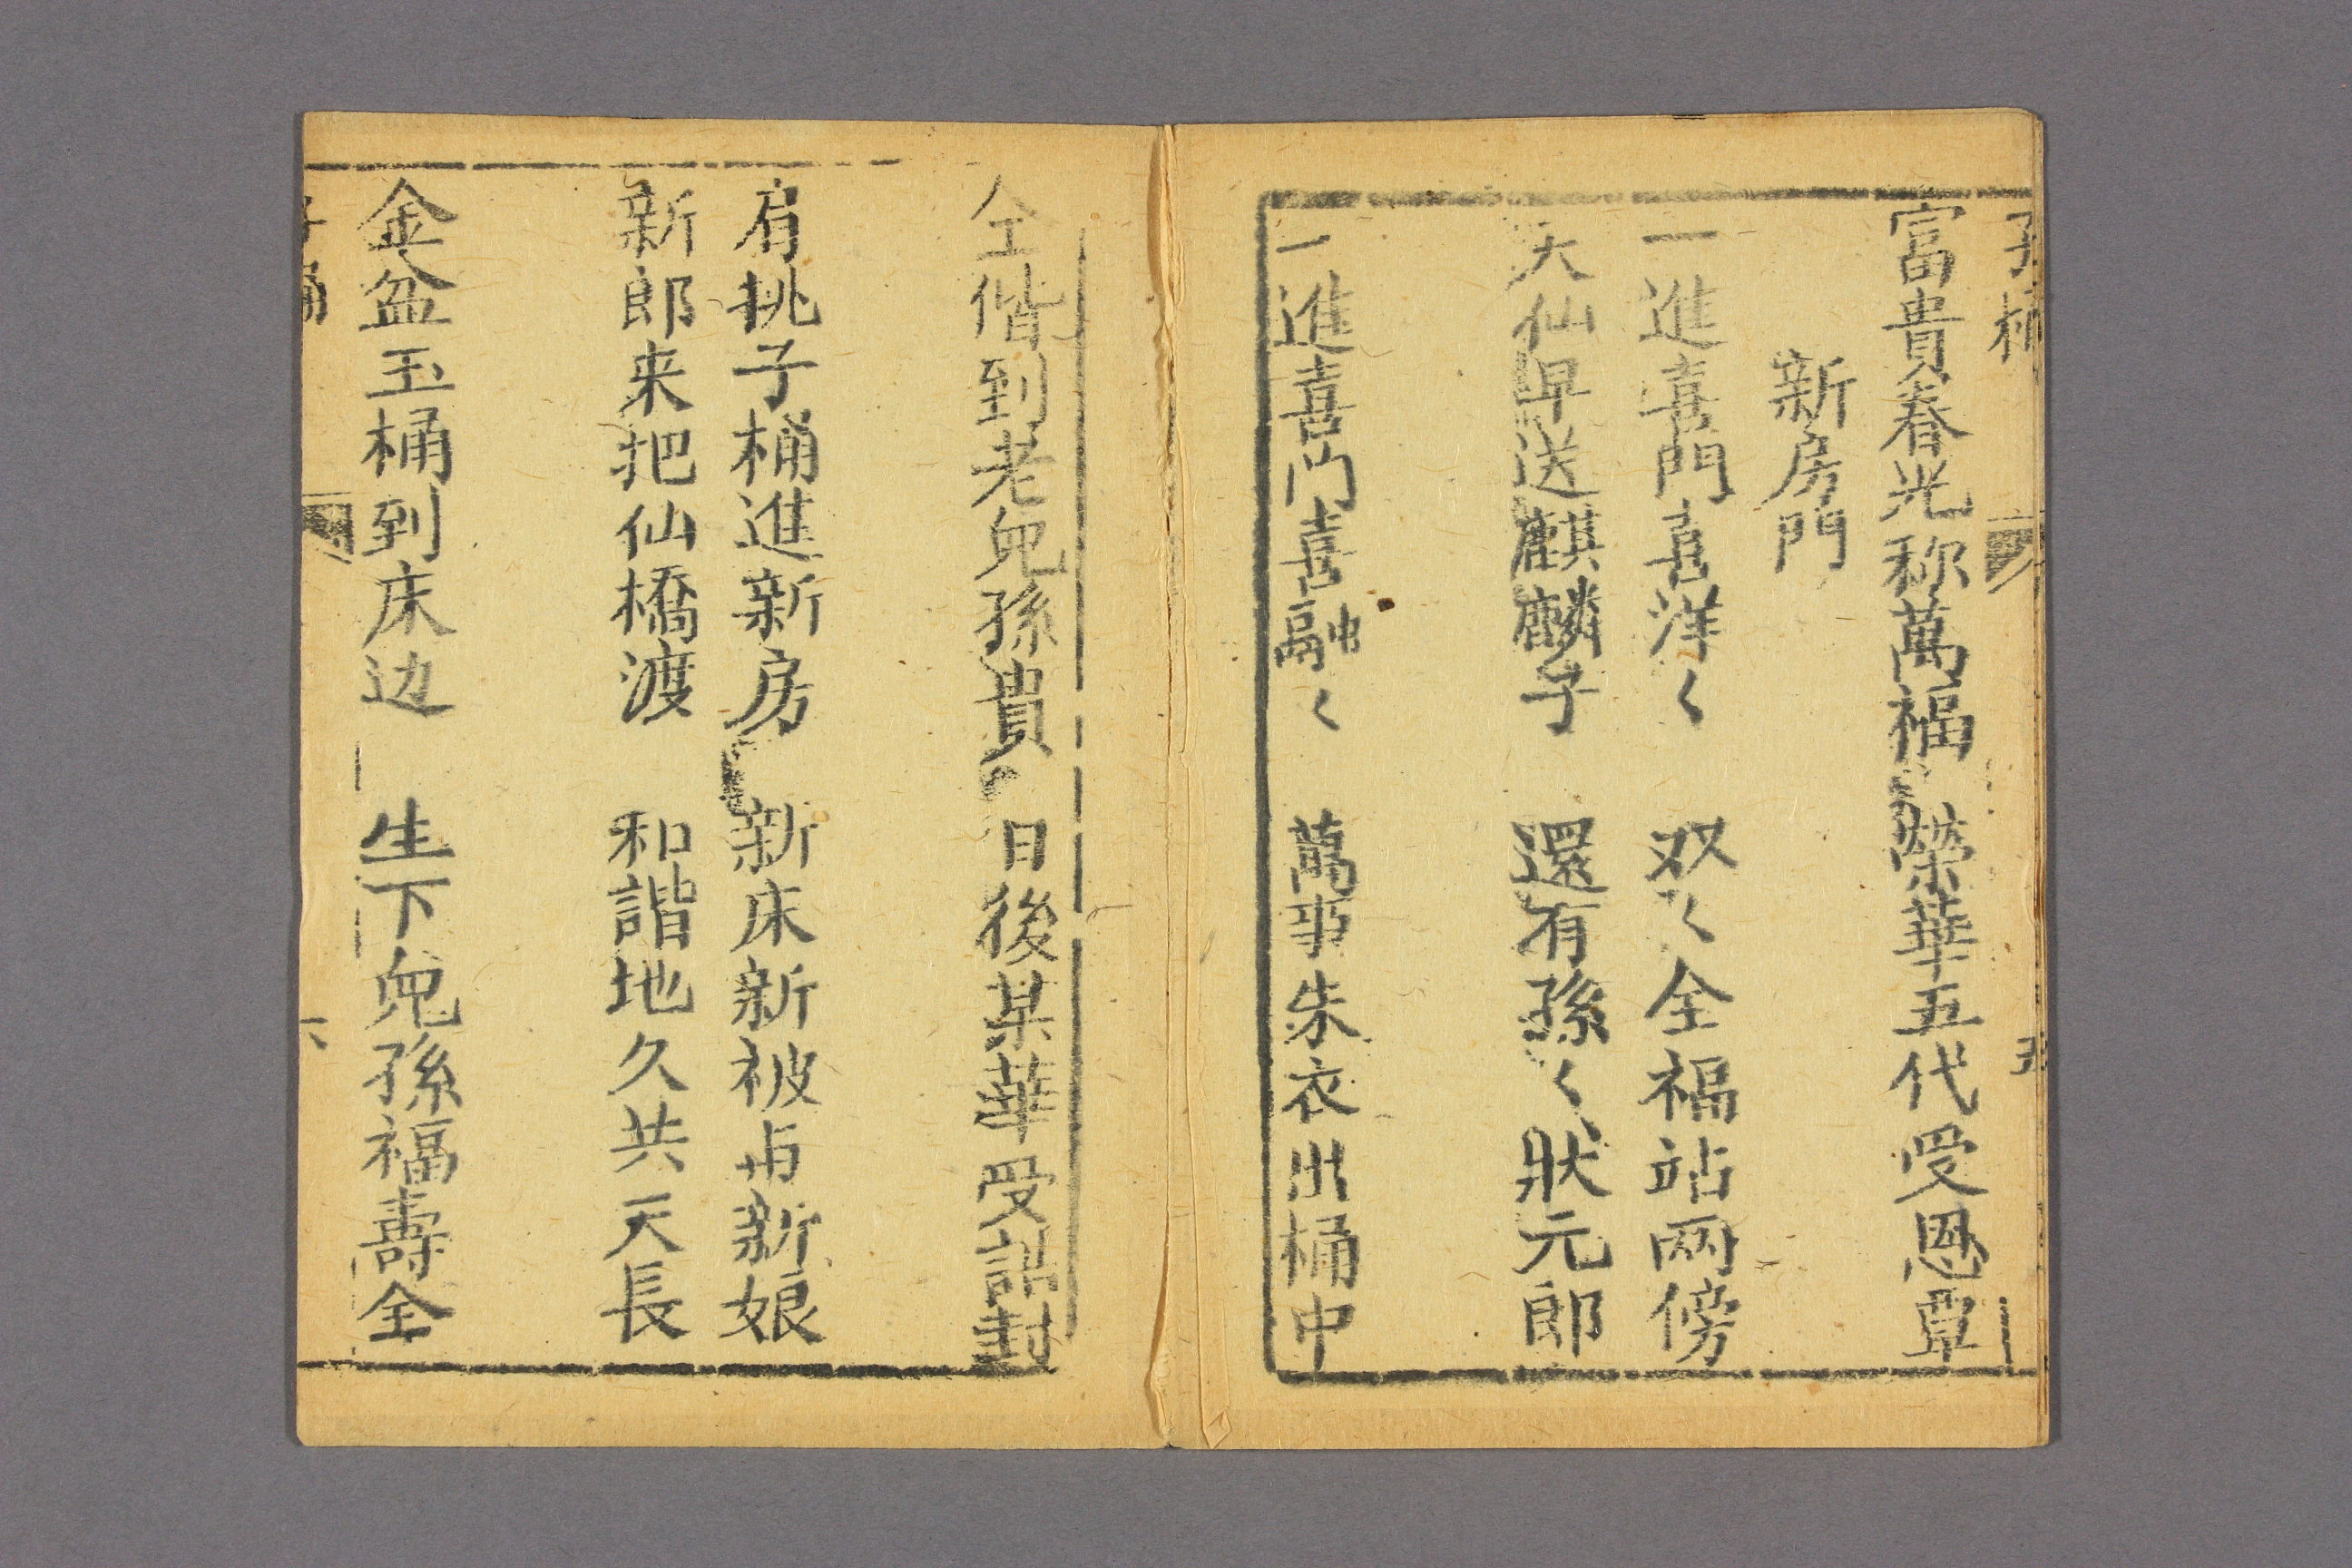 子桶
五
富貴春光称萬福 榮華五代受恩覃
新房門
一進喜門喜洋〱 双〱全福站两傍
天仙早送麒麟子 還有孫〱狀元郎
一進喜门喜融〱 萬事朱衣出桶中
仝偕到老兒孫貴 日後某華受誥封
肩挑子桶進新房 新床新被占新娘
新郎来把仙橋渡 和諧地久共天長
金盆玉桶到床边 生下兒孫福壽全
子桶
六